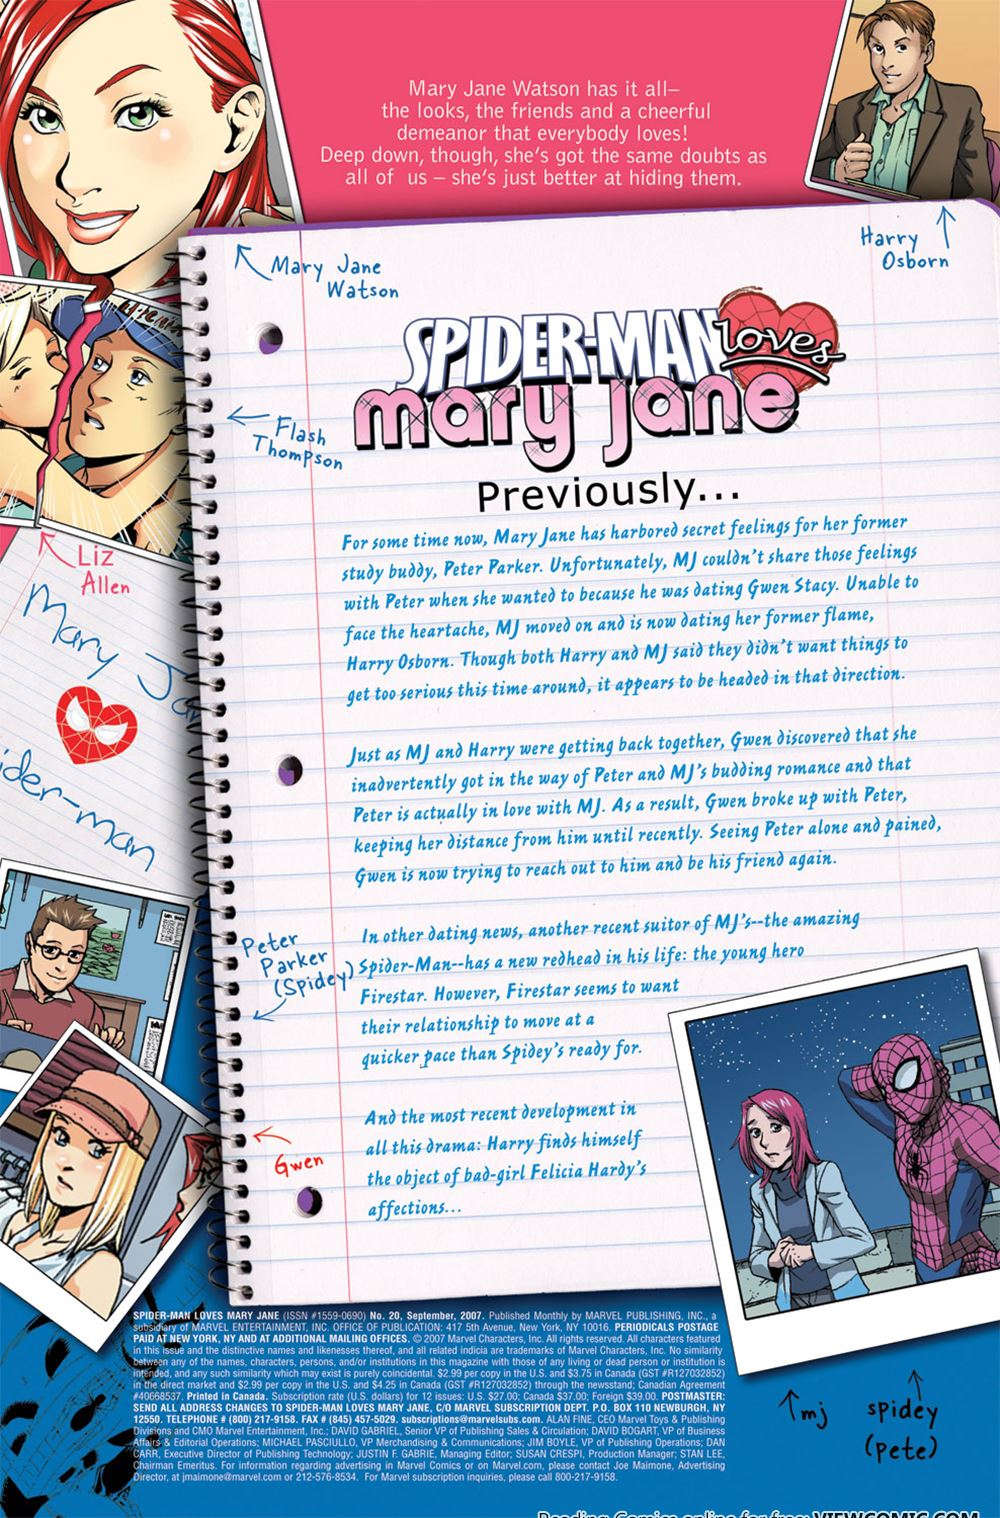 Mary Jane Watson has it all–
the looks, the friends and a cheerful
demeanor that everybody loves!
Deep down, though, she's got the same doubts as
all of us – she's just better at hiding them.
Mary Jane
Watson
Harry
Osborn
SPIDER-MAN
loves
mary jane
Flash
Thompson
Previously...
For some time now, Mary Jane has harbored secret feelings for her former
study buddy, Peter Parker. Unfortunately, MJ couldn't share those feelings
with Peter when she wanted to because he was dating Gwen Stacy. Unable to
face the heartache, MJ moved on and is now dating her former flame,
Harry Osborn. Though both Harry and MJ said they didn't want things to
get too serious this time around, it appears to be headed in that direction.
Liz
Allen
Mary Ja
ider-man
Just as MJ and Harry were getting back together, Gwen discovered that she
inadvertently got in the way of Peter and MJ's budding romance and that
Peter is actually in love with MJ. As a result, Gwen broke up with Peter,
keeping her distance from him until recently. Seeing Peter alone and pained,
Gwen is now trying to reach out to him and be his friend again.
Peter
Parker
(Spidey)
In other dating news, another recent suitor of MJ's--the amazing
Spider-Man--has a new redhead in his life: the young hero
Firestar. However, Firestar seems to want
their relationship to move at a
quicker pace than Spidey's ready for.
And the most recent development in
all this drama: Harry finds himself
the object of bad-girl Felicia Hardy's
affections...
Gwen
mj
spidey
(pete)
SPIDER-MAN LOVES MARY JANE (ISSN #1559-0690) No. 20, September, 2007. Published Monthly by MARVEL PUBLISHING, INC., a
subsidiary of MARVEL ENTERTAINMENT, INC. OFFICE OF PUBLICATION: 417 5th Avenue, New York, NY 10016. PERIODICALS POSTAGE
PAID AT NEW YORK, NY AND AT ADDITIONAL MAILING OFFICES. © 2007 Marvel Characters, Inc. All rights reserved. All characters featured
in this issue and the distinctive names and likenesses thereof, and all related indicia are trademarks of Marvel Characters, Inc. No similarity
between any of the names, characters, persons, and/or institutions in this magazine with those of any living or dead person or institution is
intended, and any such similarity which may exist is purely coincidental. $2.99 per copy in the U.S. and $3.75 in Canada (GST #R127032852)
in the direct market and $2.99 per copy in the U.S. and $4.25 in Canada (GST #R127032852) through the newsstand; Canadian Agreement
#40668537. Printed in Canada. Subscription rate (U.S. dollars) for 12 issues: U.S. $27.00; Canada $37.00; Foreign $39.00. POSTMASTER:
SEND ALL ADDRESS CHANGES TO SPIDER-MAN LOVES MARY JANE, C/O MARVEL SUBSCRIPTION DEPT. P.O. BOX 110 NEWBURGH, NY
12550. TELEPHONE # (800) 217-9158. FAX # (845) 457-5029. subscriptions@marvelsubs.com. ALAN FINE, CEO Marvel Toys & Publishing
Divisions and CMO Marvel Entertainment, Inc.; DAVID GABRIEL, Senior VP of Publishing Sales & Circulation; DAVID BOGART, VP of Business
Affairs & Editorial Operations; MICHAEL PASCIULLO, VP Merchandising & Communications; JIM BOYLE, VP of Publishing Operations; DAN
CARR, Executive Director of Publishing Technology; JUSTIN F. GABRIE, Managing Editor; SUSAN CRESPI, Production Manager; STAN LEE,
Chairman Emeritus. For information regarding advertising in Marvel Comics or on Marvel.com, please contact Joe Maimone, Advertising
Director, at jmaimone@marvel.com or 212-576-8534. For Marvel subscription inquiries, please call 800-217-9158.
Reading Comics online for free: VIEWCOMIC.COM